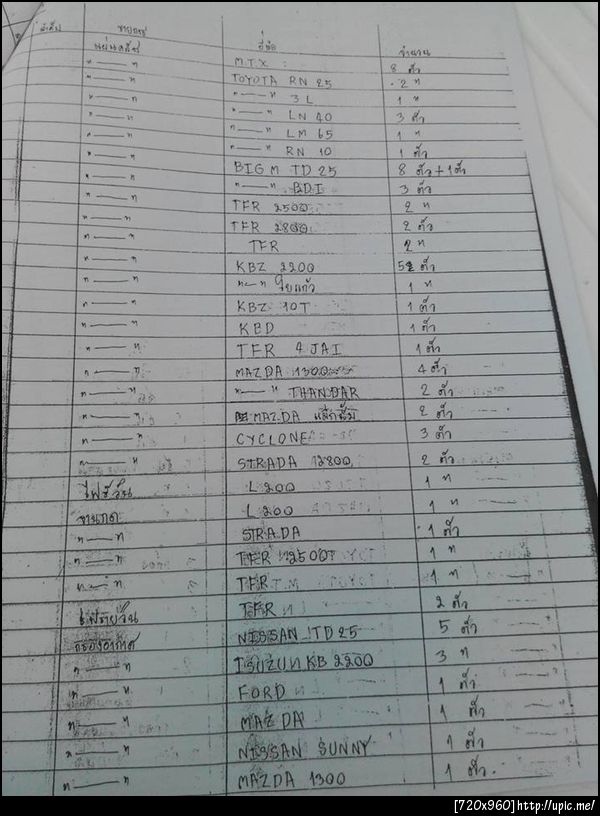 ลำดับ รายการ ยี่ห้อ จำนวน
แผ่นคลัช M.T.X : 8 ตัว
"—" TOYOTA RN 25 2 "
"—" "—" 3 L 1 "
"—" "—" LN 40 3 ตัว
"—" "—" LM 65 1 "
"—" "—" RN 10 1 ตัว
"—" BIG M TD 25 8 ตัว + 1 ตัว
"—" "—" BDI 3 ตัว
"—" TFR 2500 2 "
"—" TFR 2800 2 ตัว
"—" TFR 2 "
"—" KBZ 2200 5 ตัว
"—" "—" 1 "
"—" KBZ 10T 1 ตัว
"—" KBD 1 ตัว
"—" TFR 4 JAI 1 ตัว
"—" MAZDA 1300 4 ตัว
"—" "—" THANDAR 2 ตัว
"—" MAZDA 2 ตัว
"—" CYCLONE 3 ตัว
"—" STRADA 2800 2 ตัว
L 200 1 "
จานกด L 200 1 "
"—" STRADA 1 ตัว
"—" TFR 2500 1 "
"—" TFR 1 "
TFR 2 ตัว
กรองอากาศ NISSAN TD 25 5 ตัว
"—" ISUZU KB 2200 3 "
"—" FORD 1 ตัว
"—" MAZDA 1 ตัว
"—" NISSAN SUNNY 1 ตัว
"—" MAZDA 1300 1 ตัว
[720x960]http://upic.me/